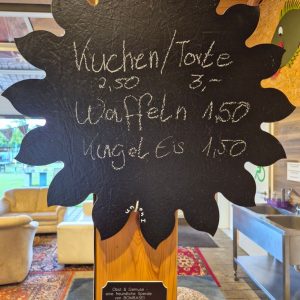 Kuchen/Torte
2,50 3,-
Waffeln 1,50
Kugel Eis 1,50
Obst & Gemüse
eine freundliche Spende
von